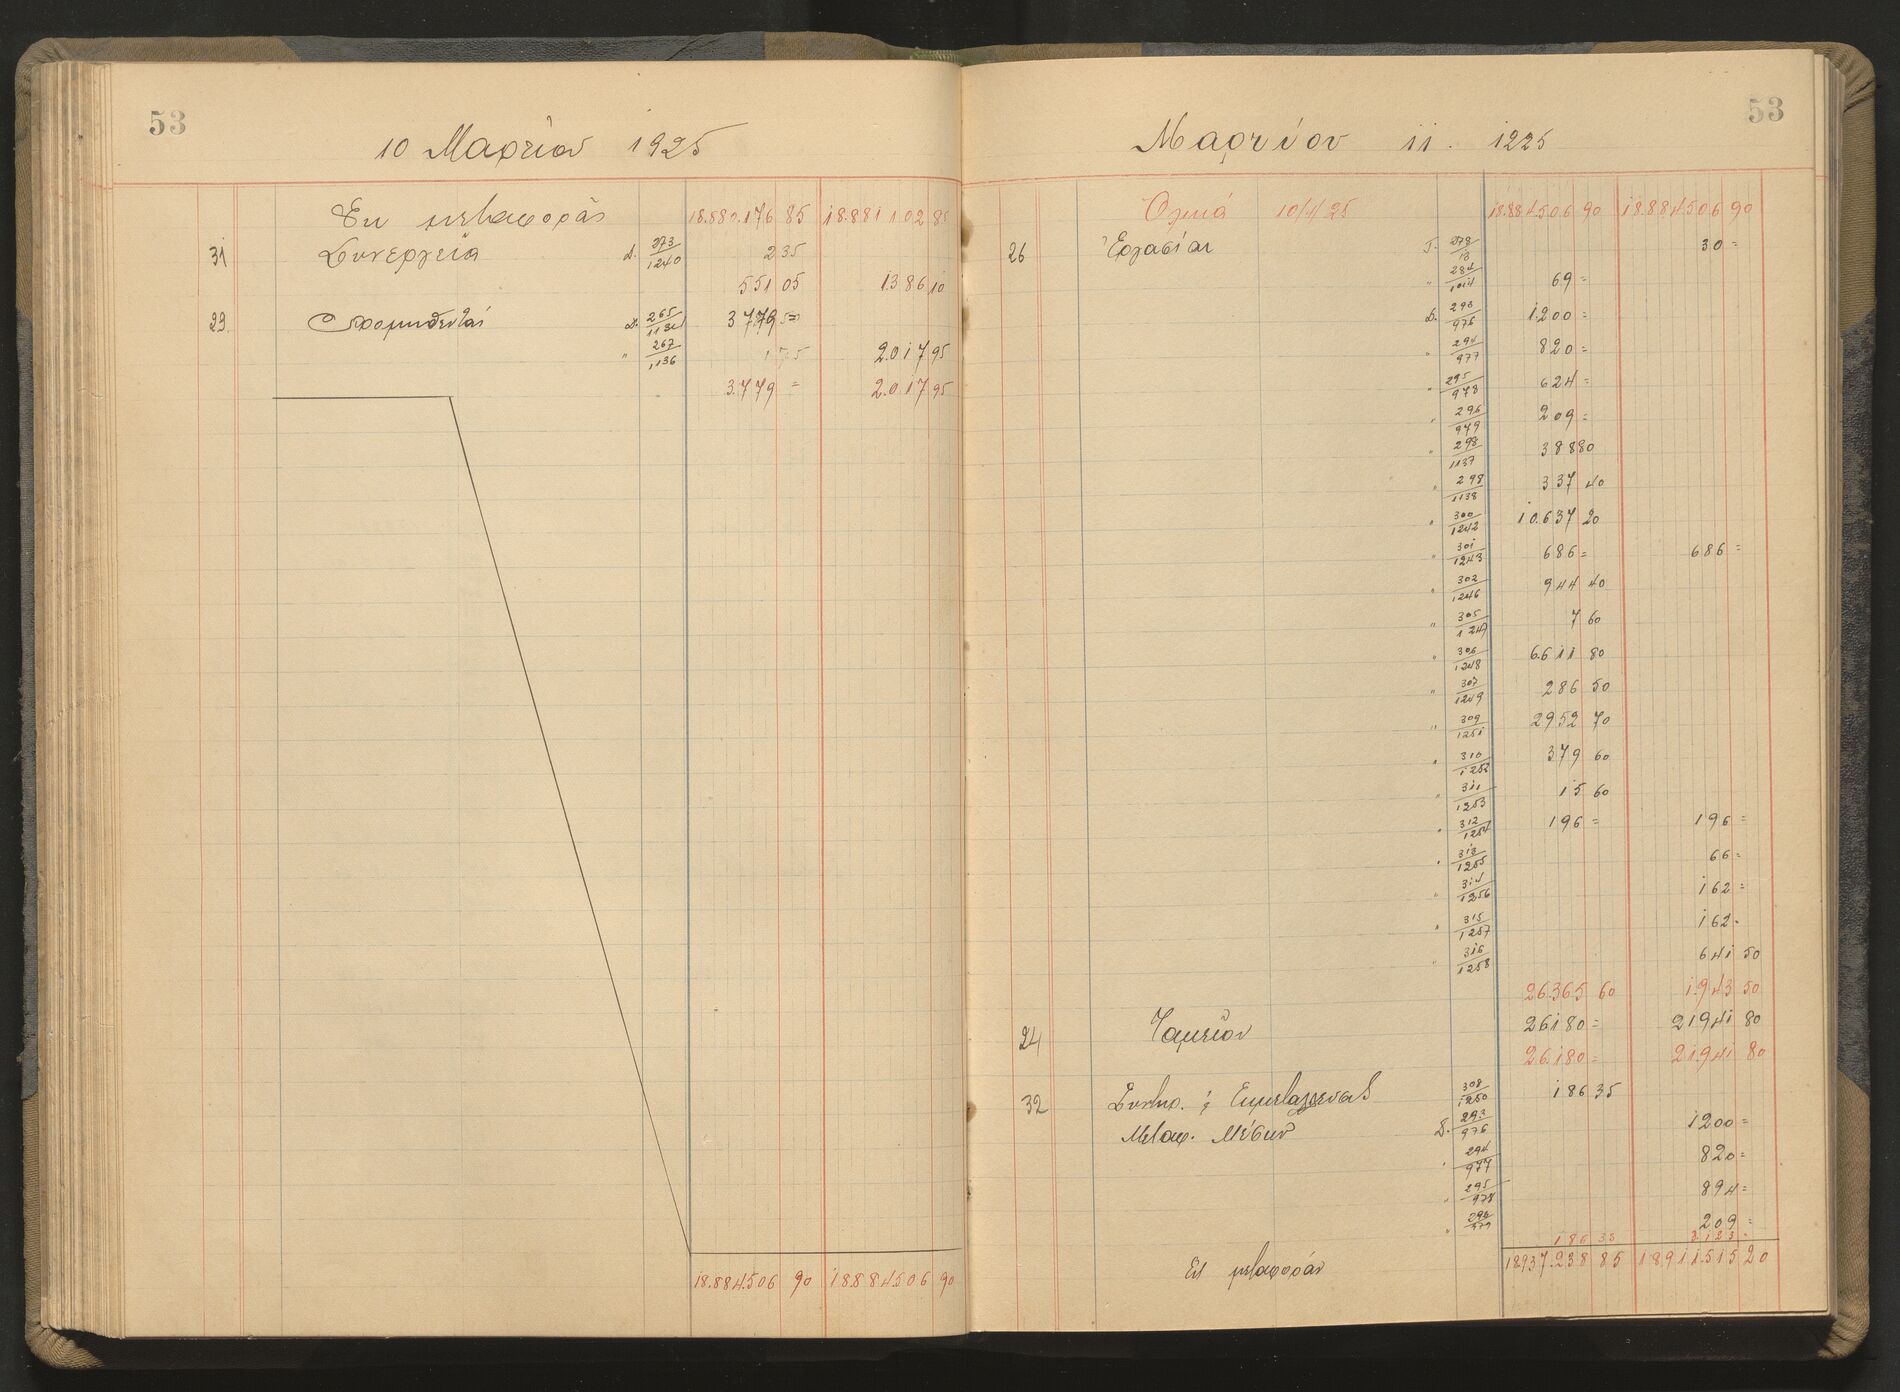 53
10 Μαρτίου 1925
Εκ μεταφοράς 18.880.176 85 18.881.102 85
31 Συνεργεία Δ. 273/1240 235
551 05 1386 10
29 Προμηθευταί Δ. 265/1134 3779
" 267/1136 2.017 95
3.779 = 2.017 95
18.884.506 90 18.884.506 90
53
Μαρτίου 11. 1925
Ολικά 10/4/25 18.884.506 90 18.884.506 90
26 Εργασίαι Γ. 278/13 30 =
" 284/1014 69 =
Δ. 293/976 1.200 =
" 294/977 820 =
" 295/978 624 =
" 296/979 209 =
" 298/1137 388 80
" 298/1138 337 40
" 300/1242 10.637 20
" 301/1243 686 = 686 =
" 302/1246 944 40
" 305/1247 7 60
" 306/1248 6.611 80
" 307/1249 286 50
" 309/1251 2952 70
" 310/1252 379 60
" 311/1253 15 60
" 312/1254 196 = 196 =
" 313/1255 66 =
" 314/1256 162 =
" 315/1257 162 =
" 316/1258 641 50
26.365 60 1.943 50
24 Ταμείον 26180 = 21941 80
26.180 = 21.941 80
32 Συντηρ. & Εκμεταλλεύσεως 308/1250 186 35
Μεταφ. Μέσων Δ. 293/976 1200 =
" 294/977 820 =
" 295/978 894 =
" 296/979 209 =
186 35 3.123 =
Εις μεταφοράν 18937.238 85 18.911.515 20